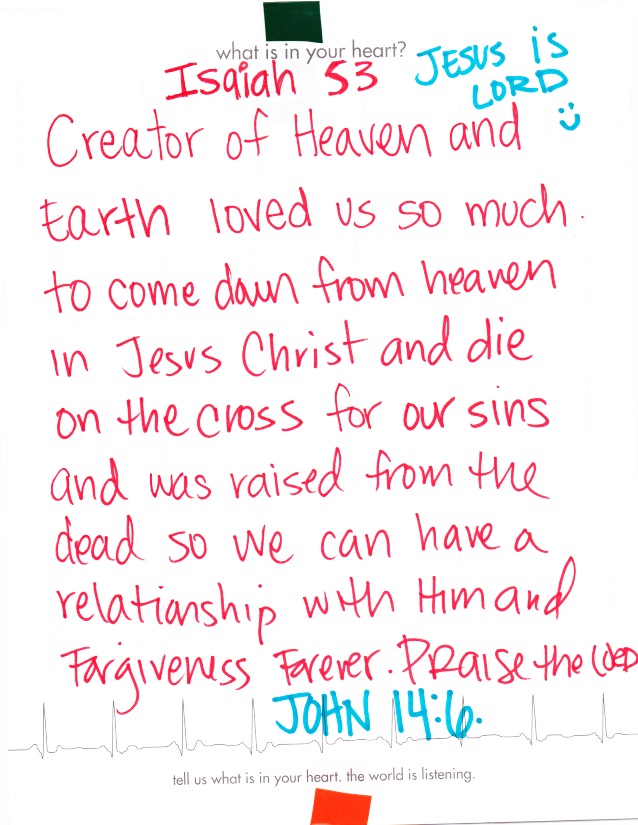 what is in your heart?
JESUS is
LORD
Isaiah 53
Creator of Heaven and
Earth loved us so much.
to come down from heaven
in Jesus Christ and die
on the cross for our sins
and was raised from the
dead so we can have a
relationship with Him and
Forgiveness Forever. PRaise the LORD
JOHN 14:6.
tell us what is in your heart. the world is listening.